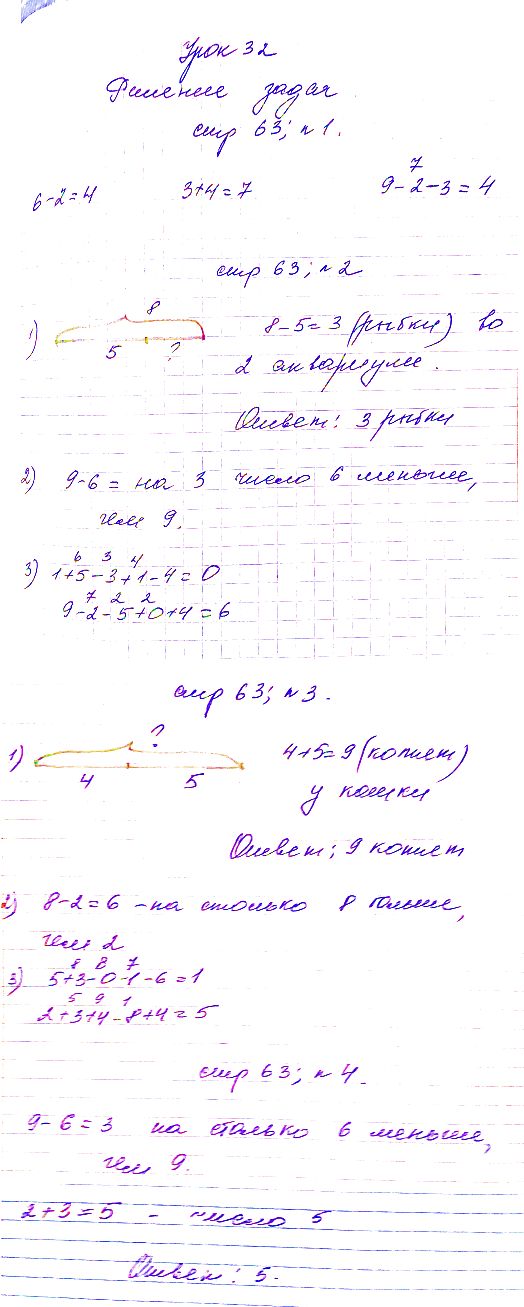 Урок 32
Решение задач.
стр 63; н 1.
7
6-2=4 3+4=7 9-2-3=4
стр 63; н 2
8
1) 5 ? 8-5=3 (рыбки) во
2 аквариуме.
Ответ: 3 рыбки
2) 9-6= на 3 число 6 меньше,
чем 9.
6 3 4
3) 1+5-3+1-4=0
7 2 2
9-2-5+0+4=6
стр 63; н 3.
?
1) 4 5 4+5=9 (котят)
у кошки
Ответ; 9 котят
2) 8-2=6 - на столько 8 больше,
чем 2
8 8 7
3) 5+3-0-1-6=1
5 9 1
2+3+4-8+4=5
стр 63; н 4.
9-6=3 на столько 6 меньше,
чем 9.
2+3=5 - число 5
Ответ: 5.